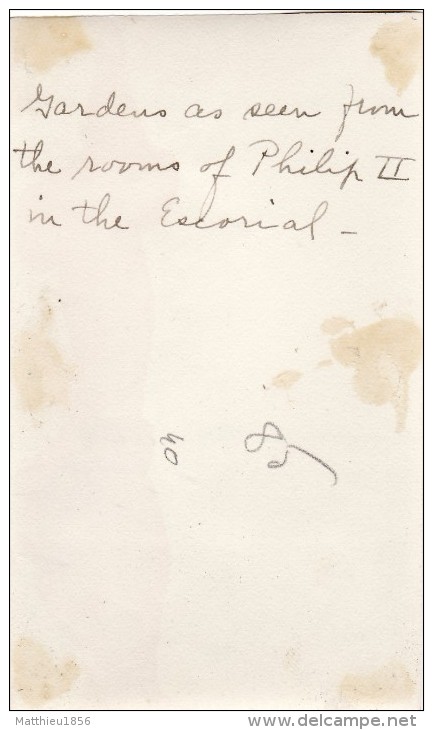 Gardens as seen from
the rooms of Philip II
in the Escorial -
40
Matthieu1856
delcampe.net